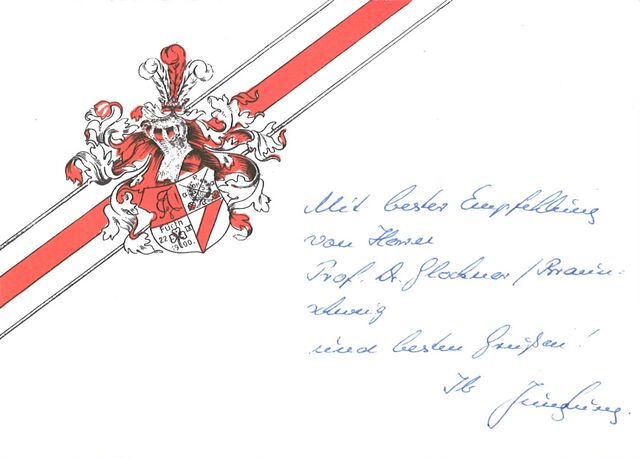 FÜRTH
22
1900.
Mit bester Empfehlung
von Herrn
Prof. Dr. Glockner / Braun-
schweig
und besten Grüßen!
Ihr